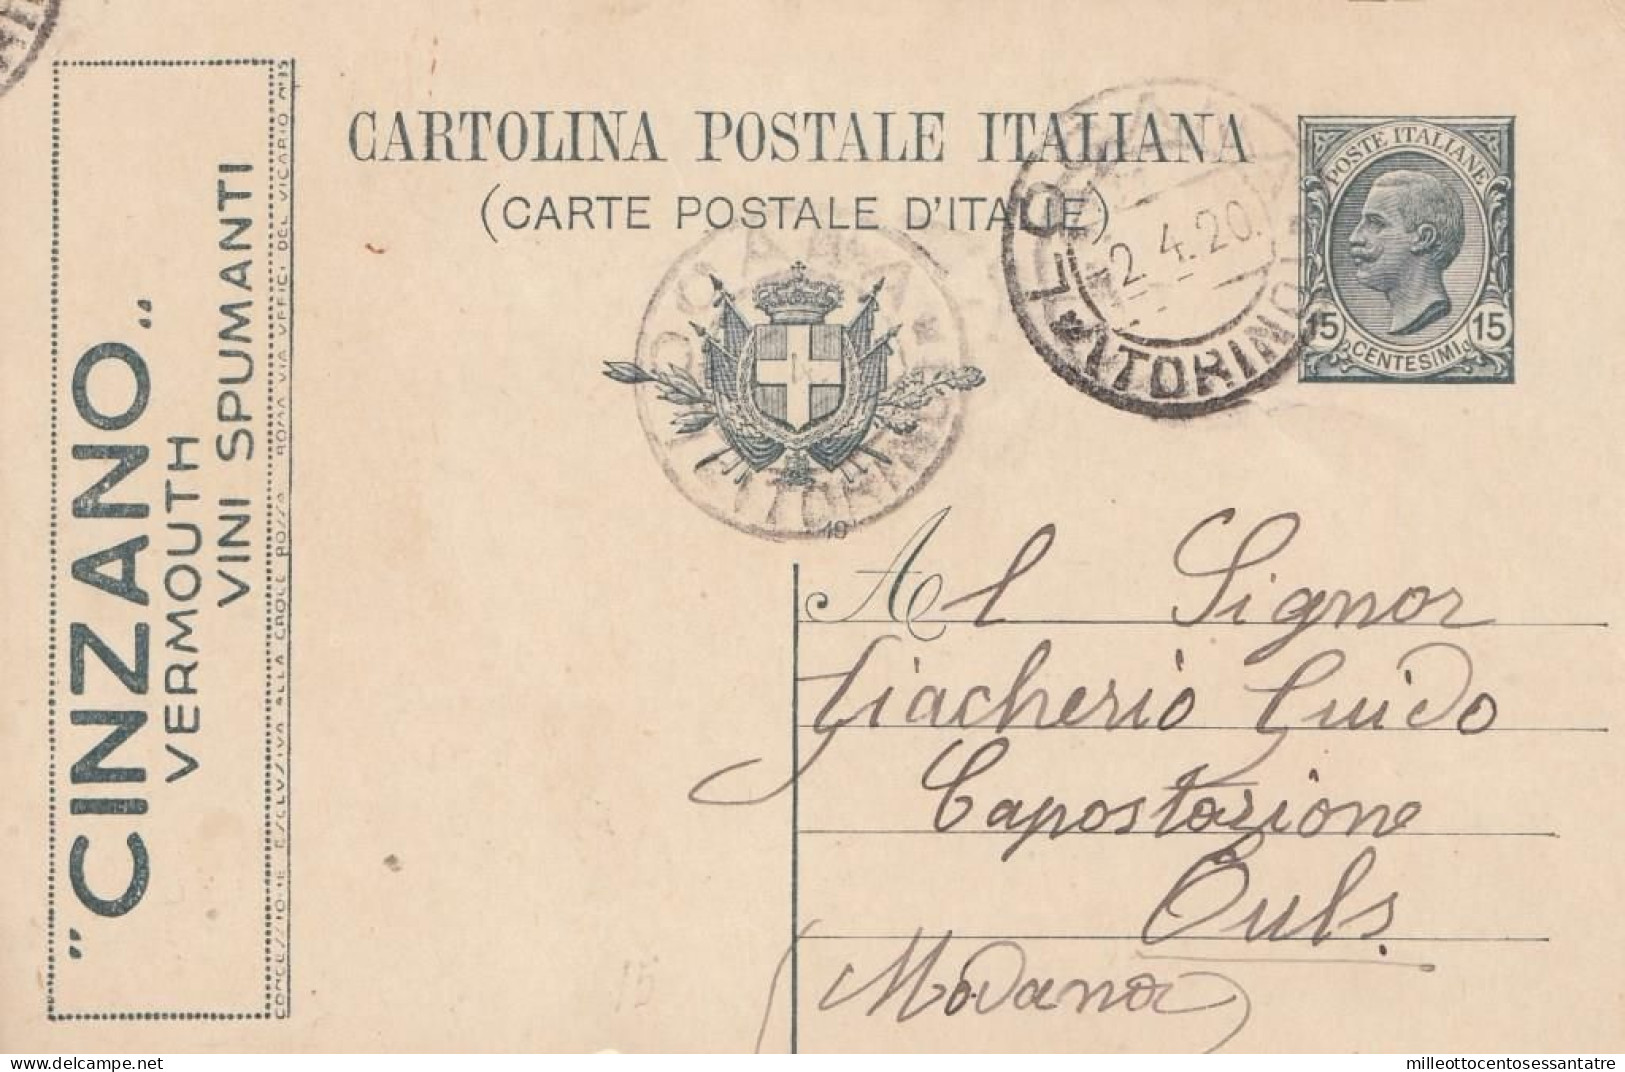 CARTOLINA POSTALE ITALIANA
(CARTE POSTALE D'ITALIE)
POSTE ITALIANE
15 15
CENTESIMI
2.4.20.
(TORINO)
19
"CINZANO"
VERMOUTH
VINI SPUMANTI
CONCESSIONE ESCLUSIVA ALLA CROCE ROSSA ROMA VIA UFFICI DEL VICARIO N°15
Al Signor
Giacherio Guido
Capostazione
Oulx
(Modana)
15
milleottocentosessantatre